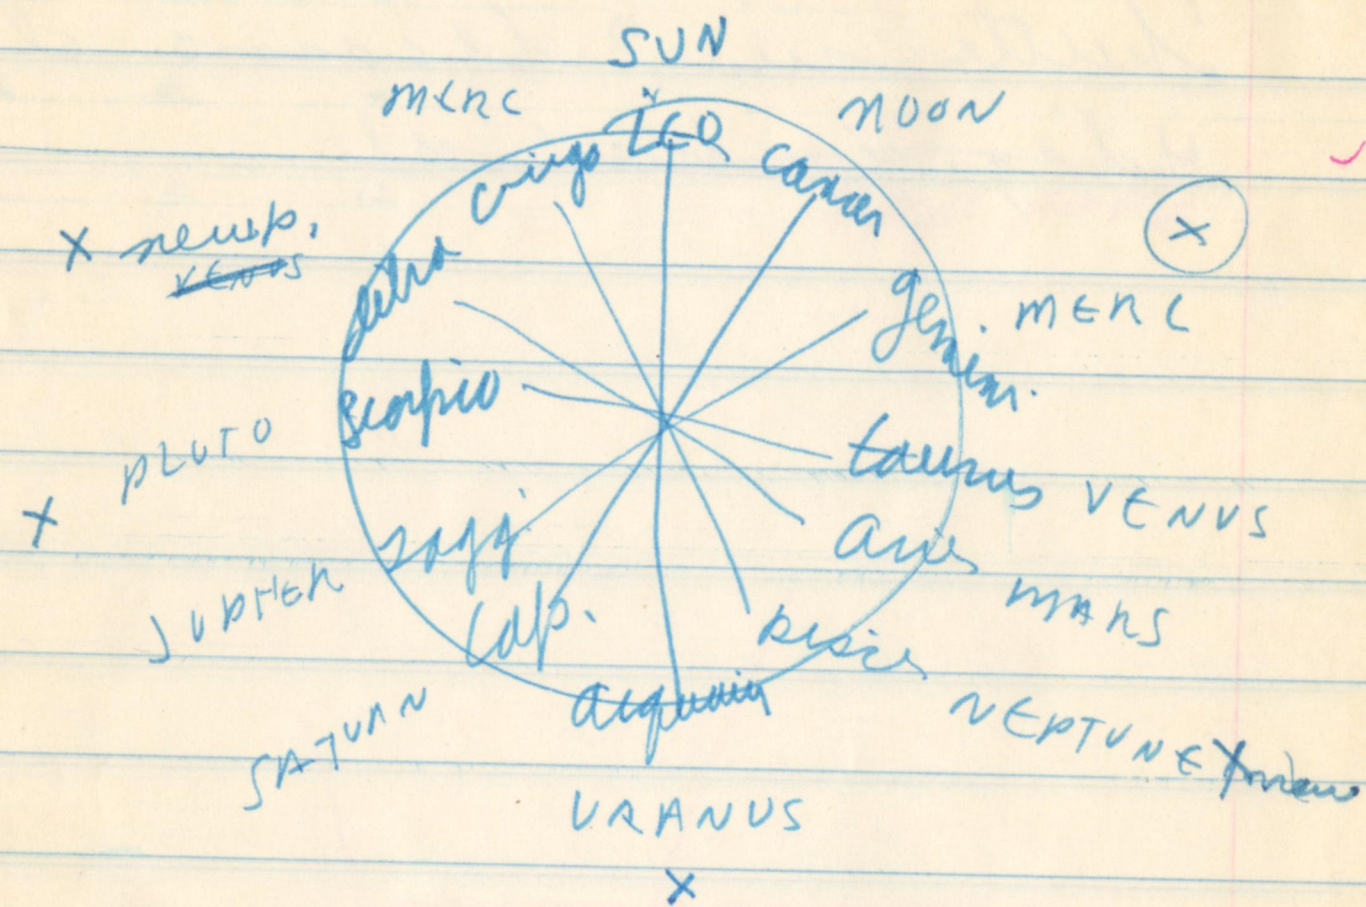 SUN
MERC
MOON
LEO
virgo
cancer
X neup.
VENUS
X
libra
gemini.
MERC
scorpio
PLUTO
taurus
VENUS
X
sagi.
aries
JUPITER
MARS
cap.
pisces
SATURN
NEPTUNE X
URANUS
X